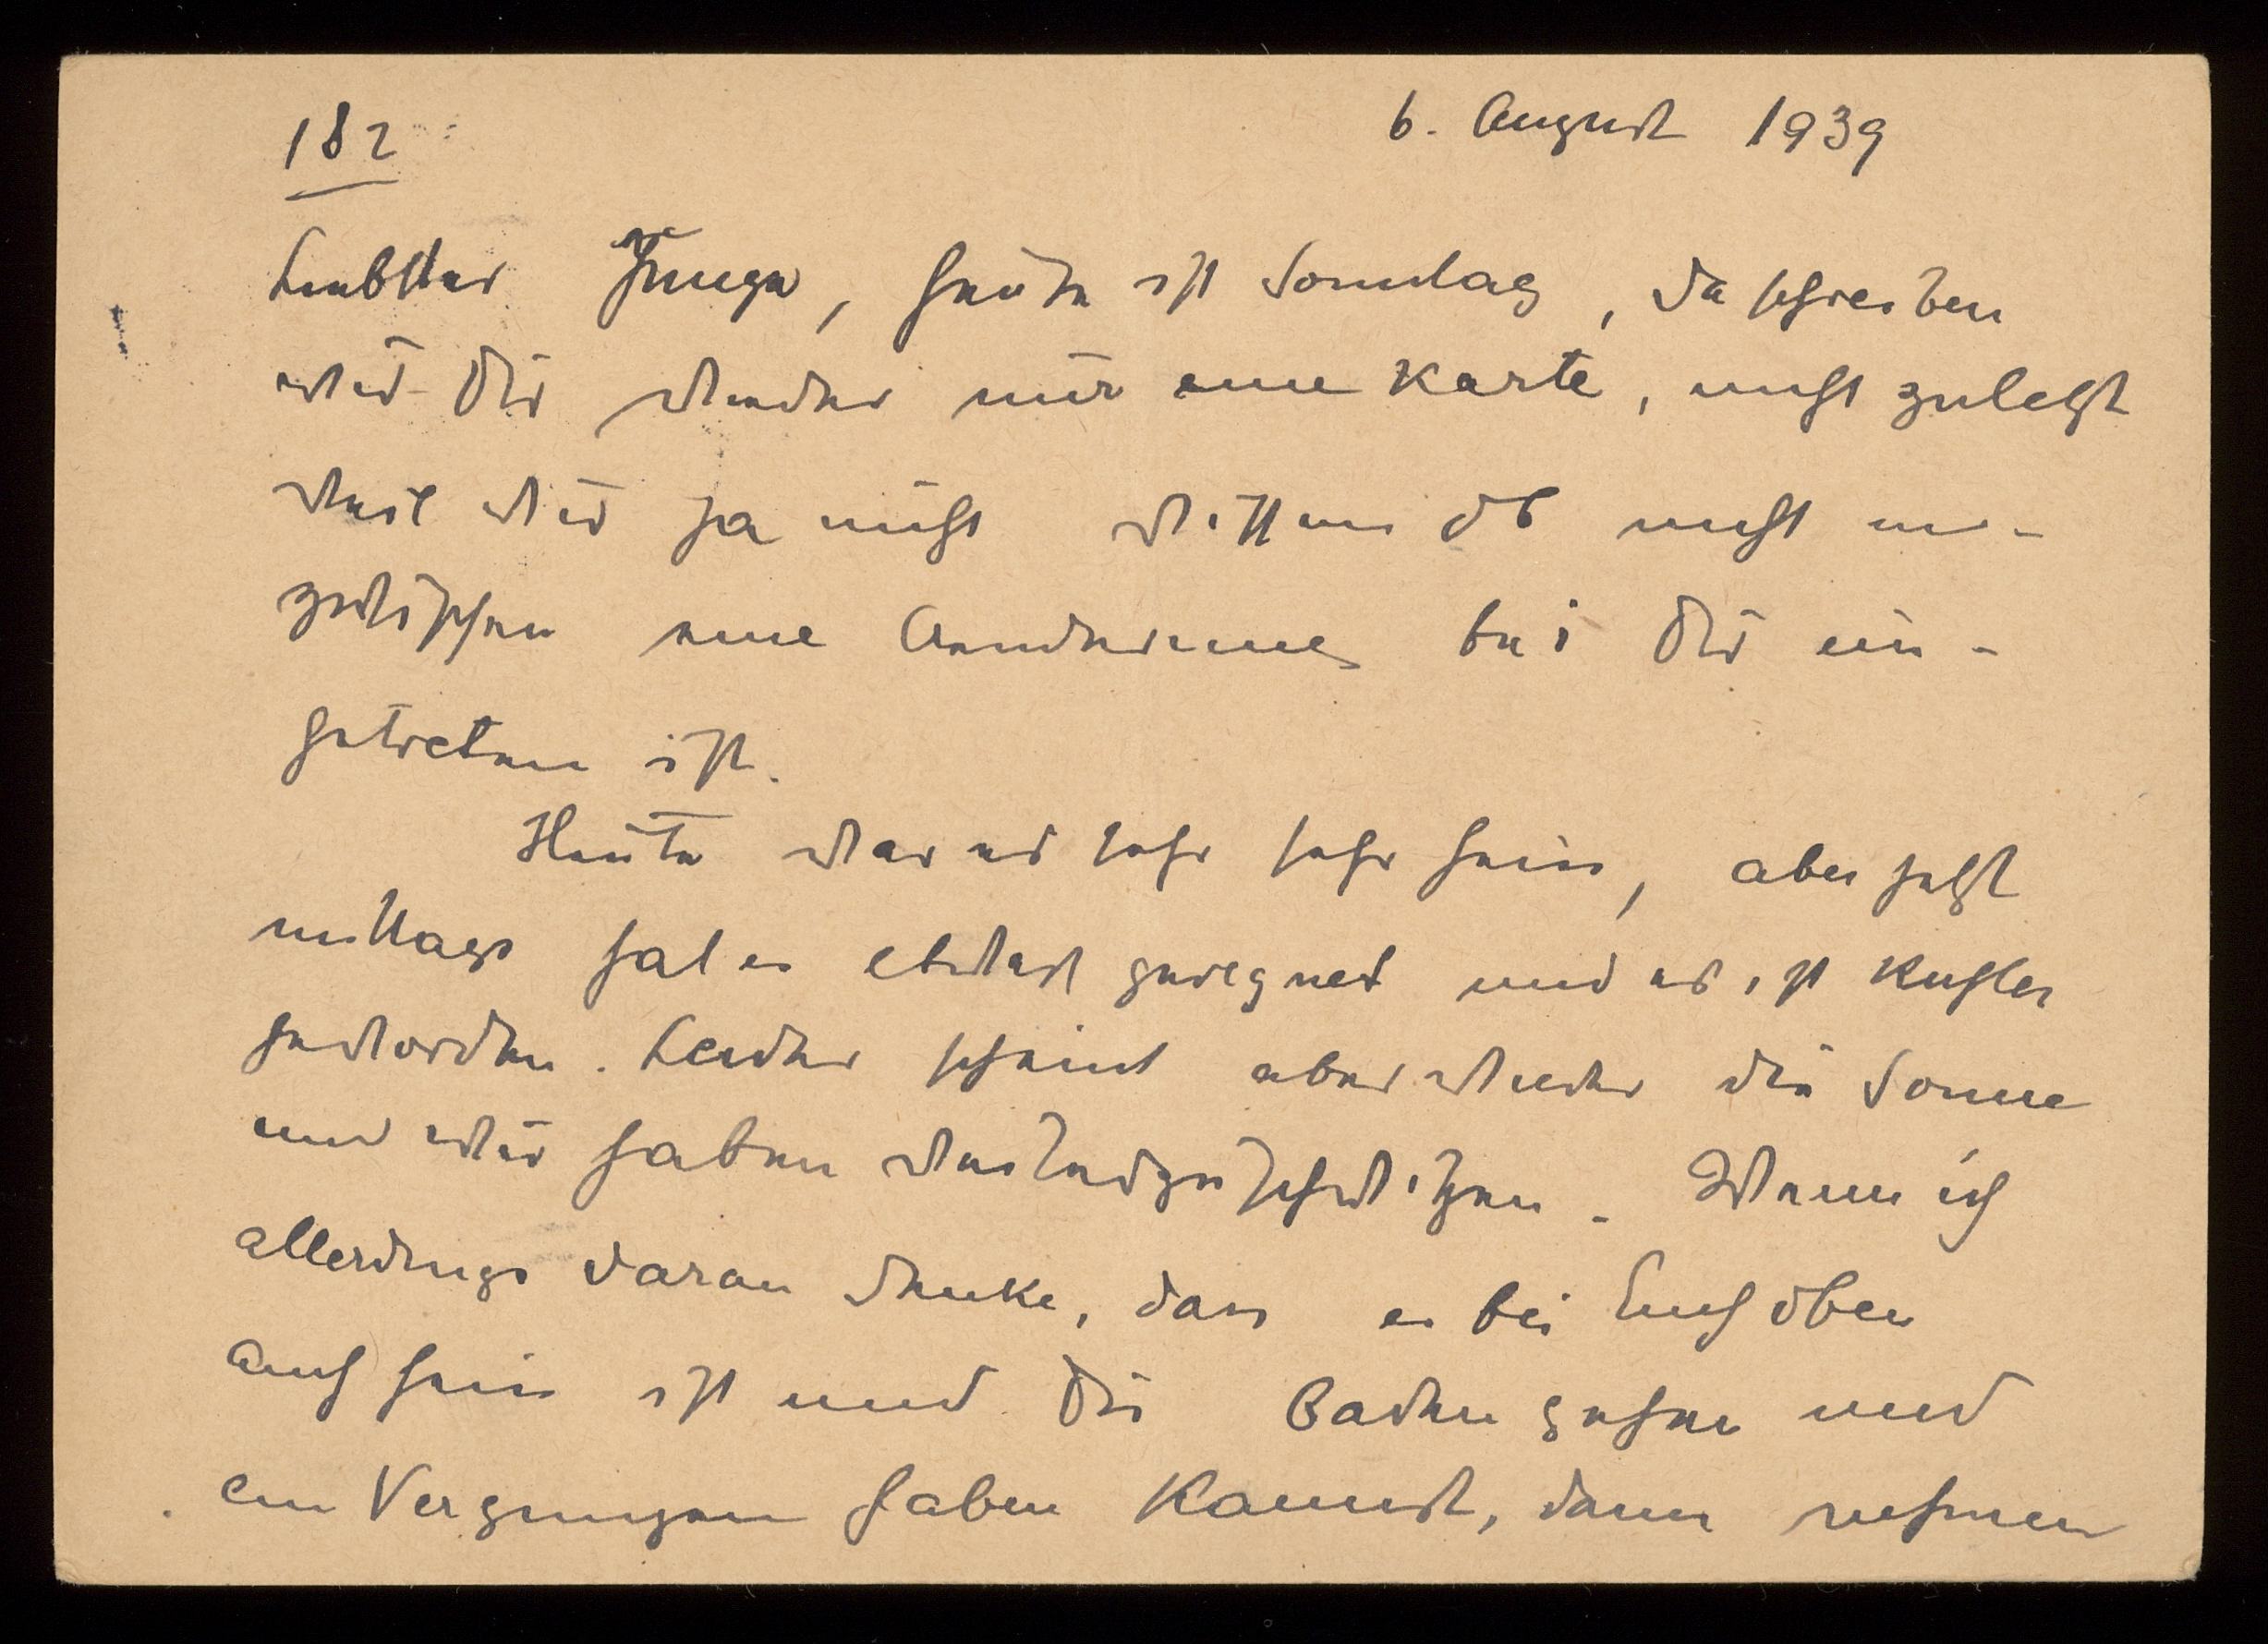 182
6. August 1939
Liebster Junge, heute ist Sonntag, da schreiben
wir Dir wieder nur eine Karte, nicht zuletzt
weil wir ja nicht wissen ob nicht in-
zwischen eine Aenderung bei Dir ein-
getreten ist.
Heute war es sehr sehr heiss, aber jetzt
mittags hat es etwas geregnet und es ist kühler
geworden. Leider scheint aber wieder die Sonne
und wir haben weiterzuschwitzen. Wenn ich
allerdings daran denke, dass es bei Euch oben
auch heiss ist und Du Baden gehen und
ein Vergnügen haben kannst, dann nehmen